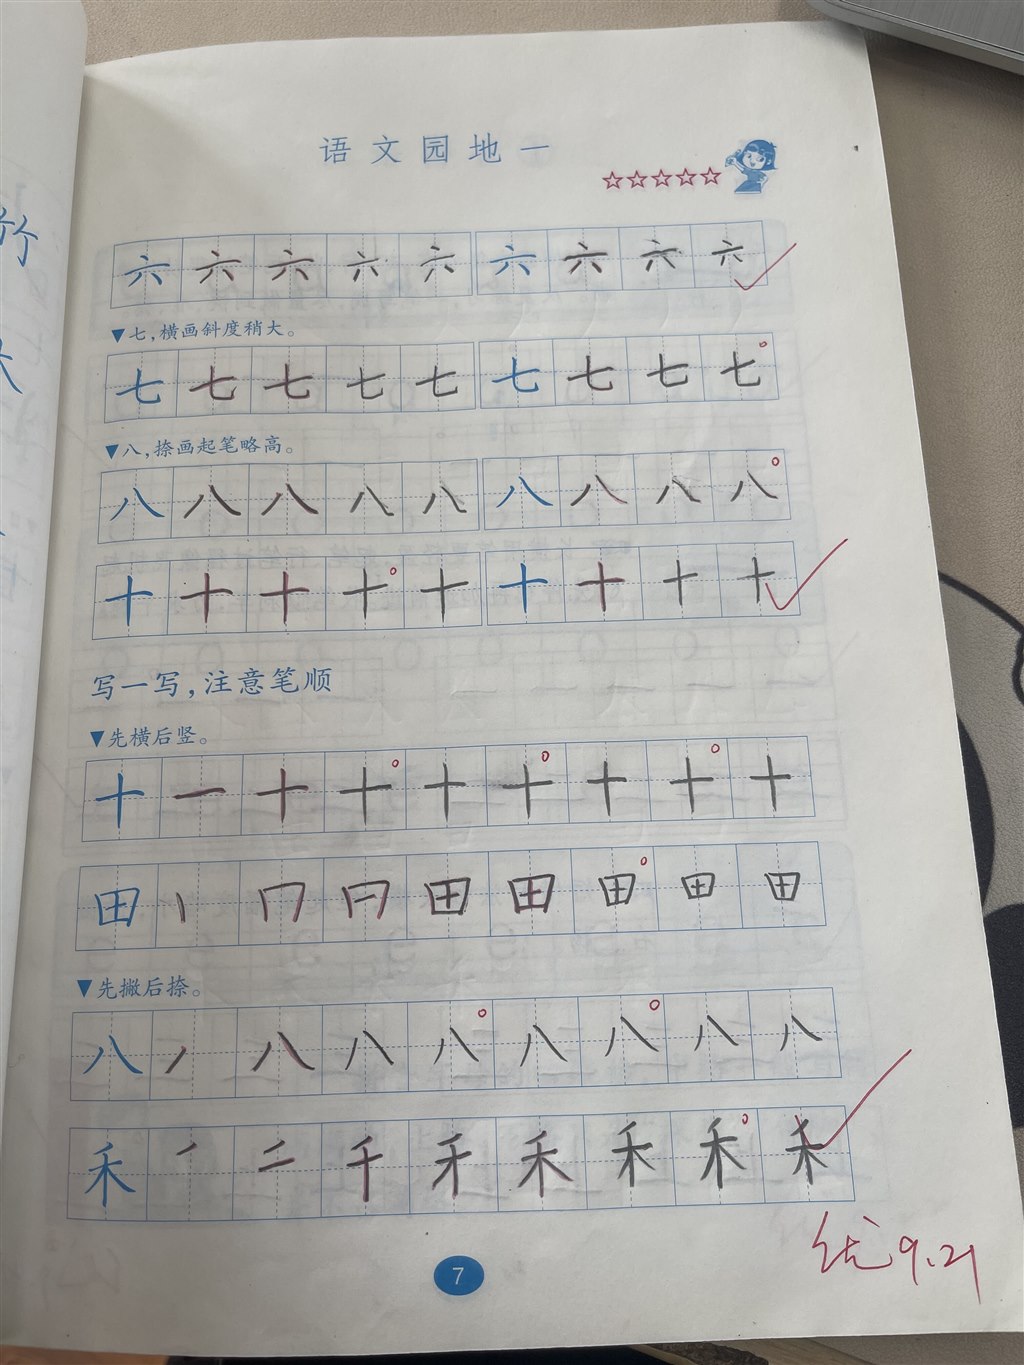 语文园地一
☆☆☆☆☆
六 六 六 六 六 六 六 六 六
▼七,横画斜度稍大。
七 七 七 七 七 七 七 七 七
▼八,捺画起笔略高。
八 八 八 八 八 八 八 八 八
十 十 十 十 十 十 十 十 十
写一写,注意笔顺
▼先横后竖。
十 一 十 十 十 十 十 十 十
田 丨 冂 冃 田 田 田 田 田
▼先撇后捺。
八 丿 八 八 八 八 八 八 八
禾 丿 二 千 禾 禾 禾 禾 禾
优 9.21
7
竹